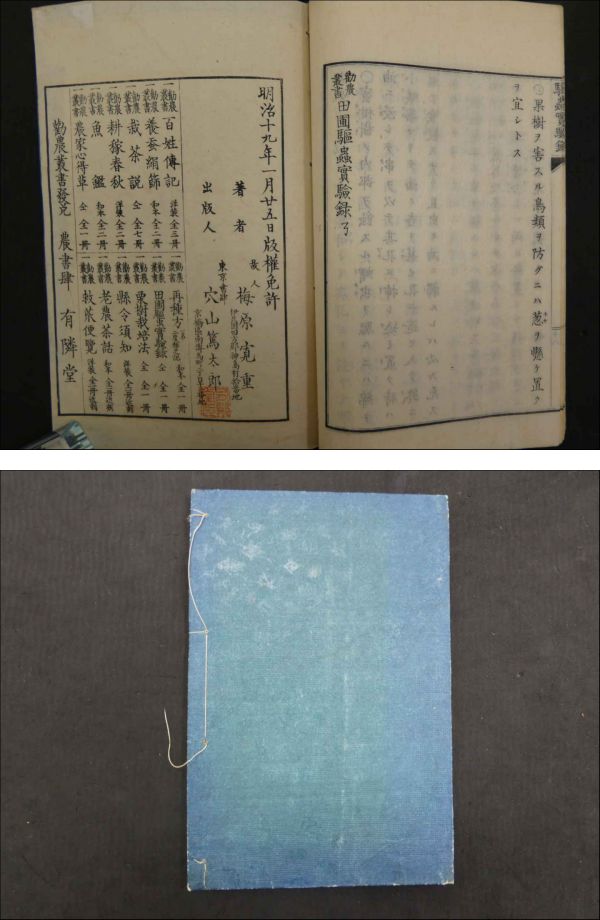 ○果樹ヲ害スル鳥類ヲ防グニハ葱ヲ懸ケ置ク
ヲ宜シトス
勸農叢書 田圃驅蟲實驗録 了
明治十九年一月廿五日版權免許
著者 故人 梅原寛重
出版人 東京書肆 穴山篤太郎
勸農叢書 百姓傳記 洋裝 全三冊
勸農叢書 養蚕絹篩 和本 全二冊
勸農叢書 栽茶説 全 全七冊
勸農叢書 耕稼春秋 洋裝 全二冊
勸農叢書 魚鑑 和本 全二冊
勸農叢書 農家心得草 仝 全一冊
勸農叢書 再種方 和本 全一冊
勸農叢書 田圃驅蟲實驗録 仝 全一冊
勸農叢書 栗樹栽培法 仝 全一冊
勸農叢書 縣令須知 洋裝 全二冊
勸農叢書 老農茶話 和本 全一冊
勸農叢書 救荒便覽 洋裝 全二冊
勸農叢書發兌 農書肆 有隣堂